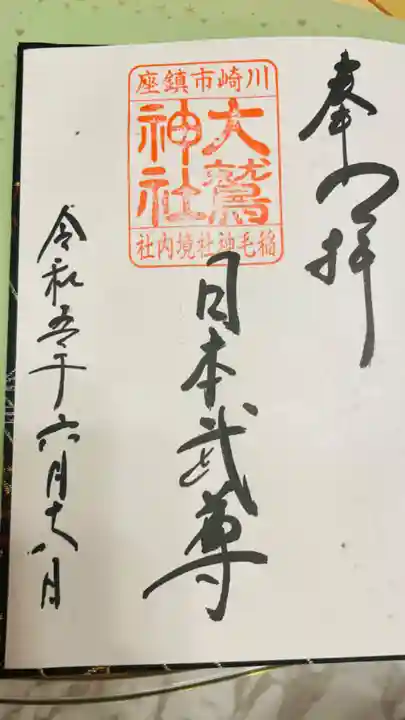 奉拝
川崎市鎮座
大鷲
神社
稲毛神社境内社
日本武尊
令和五年六月十八日